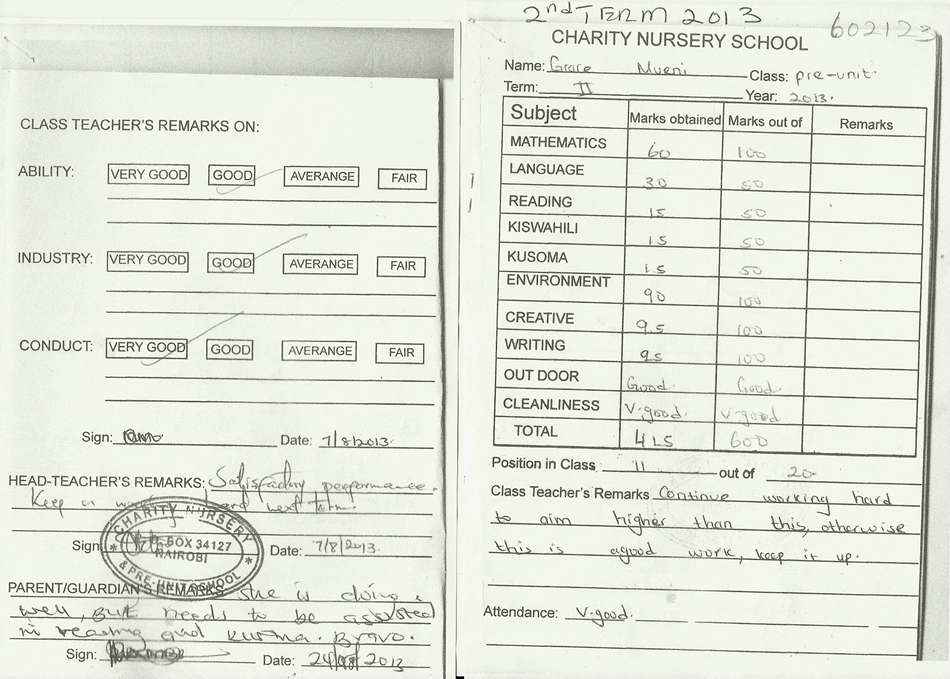 CLASS TEACHER'S REMARKS ON:
ABILITY: VERY GOOD GOOD AVERANGE FAIR
INDUSTRY: VERY GOOD GOOD AVERANGE FAIR
CONDUCT: VERY GOOD GOOD AVERANGE FAIR
Sign: Date: 7/8/2013.
HEAD-TEACHER'S REMARKS: Satisfactory performance.
Keep on hard next term.
Sign Date: 7/8/2013.
CHARITY NURSERY
P.O. BOX 34127
NAIROBI
& PRE-UNIT SCHOOL
PARENT/GUARDIAN'S REMARKS She is doing
well, But needs to be assisted
in reading and Bravo.
Sign: Date: 24/08/2013
2nd TERM 2013
602123
CHARITY NURSERY SCHOOL
Name: Grace Mueni Class: pre-unit.
Term: II Year: 2013.
Subject Marks obtained Marks out of Remarks
MATHEMATICS 60 100
LANGUAGE 30 50
READING 15 50
KISWAHILI 15 50
KUSOMA 15 50
ENVIRONMENT 90 100
CREATIVE 95 100
WRITING 95 100
OUT DOOR Good. Good.
CLEANLINESS V.good. V.good
TOTAL 415 600
Position in Class 11 out of 20
Class Teacher's Remarks Continue working hard
to aim higher than this, otherwise
this is agood work, keep it up.
Attendance: V.good.